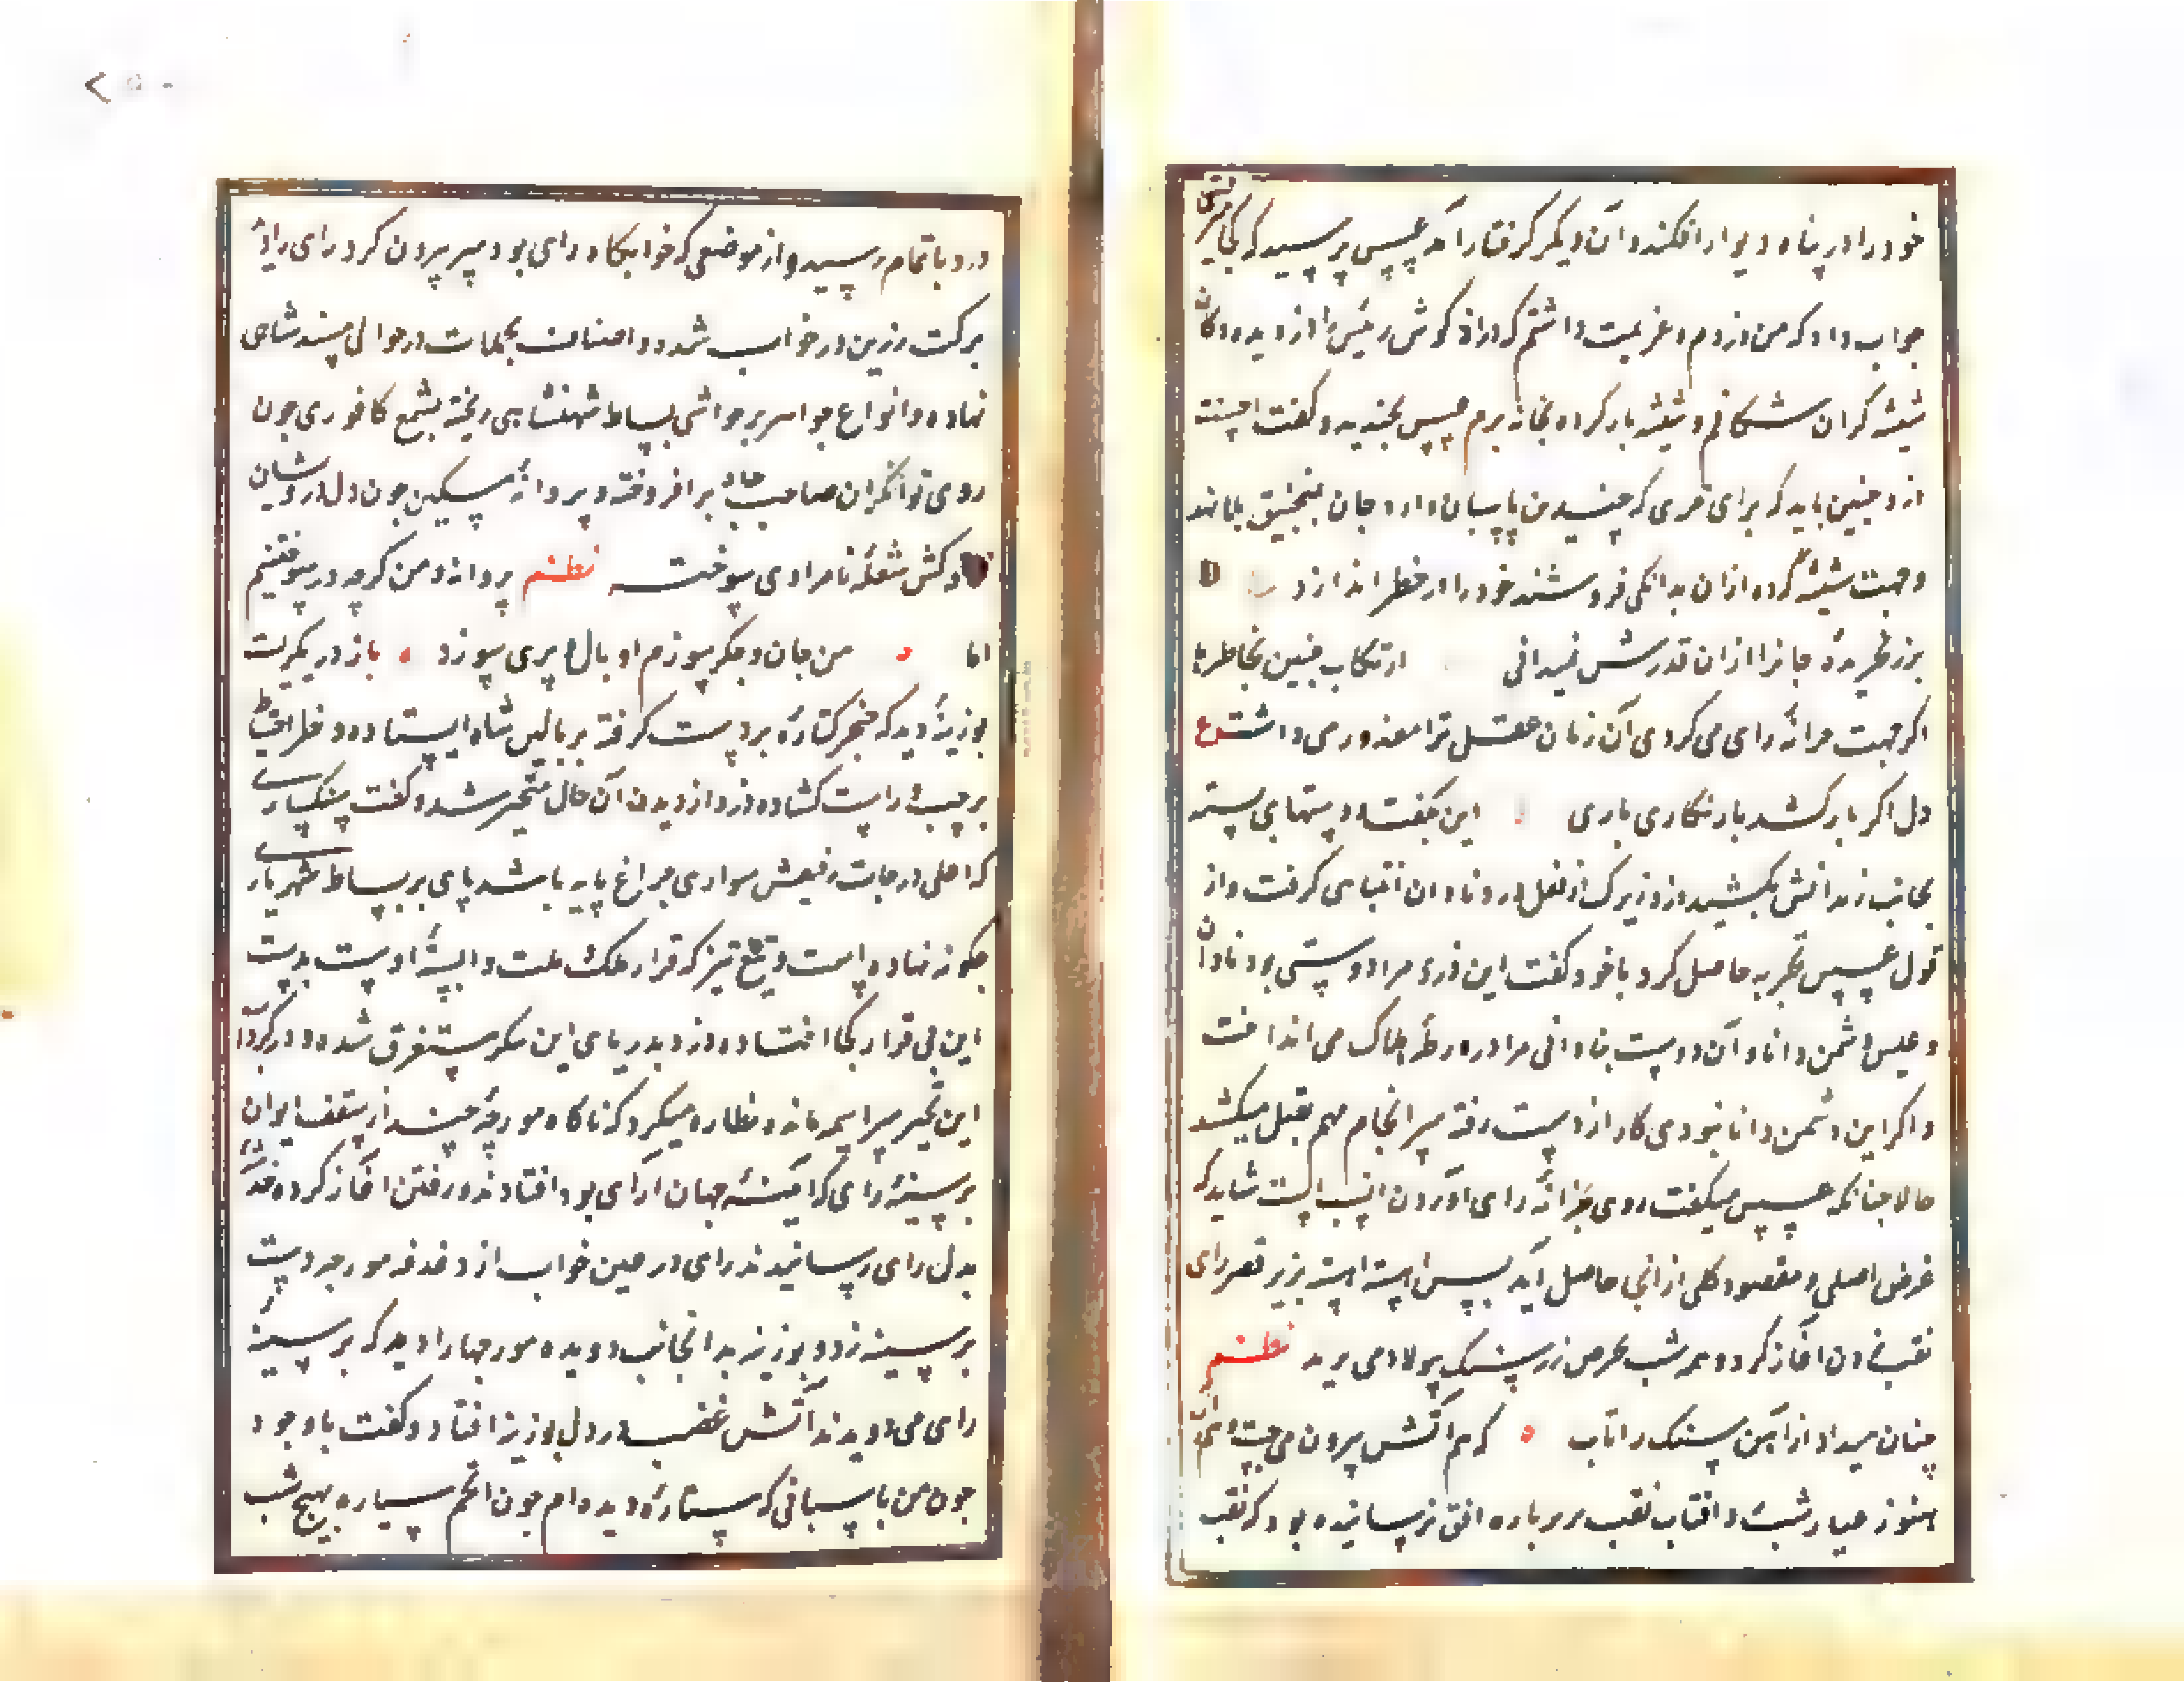 خود را در پناه دیوار افکند و آن دیکر کرفتار آمد عسس پرسید که کجا میرفتی
جواب داد که من دزدم و عزیمت داشتم که دراز کوش رئیس را دزدیده دکان
شیشه کران شکافم و شیشه بار کرده بخانه برم عسس بخندید و کفت احسنت
دزد چنین باید که برای خری که چندین پاسبان دارد جان بمنجنیق بلا نهد
و جهت شیشه که ده ازان بدانکی فروشند خود را در خطر اندازد
بزر بخریده جانرا ازان قدرش نمیدانی ارتکاب چنین مخاطره
اکر جهت خزانه رای می کردی آن زمان عقل ترا معذور می داشت ع
دل اکر بار کشد بار نکاری باری این بکفت و دستهای بسته
بجانب زندانش بکشید دزد زیرک از نقل دزد نادان انتباهی کرفت و از
قول عسس تجربه حاصل کرد با خود کفت این دزد مرا دوستی بود نادان
و عسس دشمن دانا و آن دوست بنادانی مرا در ورطه هلاک می انداخت
و اکر این دشمن دانا نبودی کار از دست رفته سر انجام مهم بقتل میکشد
حالا چنانکه عسس میکفت روی بخزانه رای آوردن انسب است شاید که
غرض اصلی و مقصود کلی از آنجا حاصل آید پس آهسته آهسته بزیر قصر رای
نقب زدن آغاز کرد و همه شب بحرص زر سنک پولاد می برید نظم
چنان میداد از آهن سنک را تاب که هم آتش برون می جست و هم آب
هنوز عیار شب و آفتاب نقب بر باره افق نرسانیده بود که نقب
دزد باتمام رسید و از موضعی که خوابکاه رای بود سر برون کرد رای را دید
بر تخت زرین در خواب شده و اصناف تجملات در حوالی مسند شاهی
نهاده و انواع جواهر بر حواشی بساط شهنشاهی ریخته شمع کافوری چون
روی توانکران صاحب جاه بر افروخته و پروانه مسکین چون دل درویشان
دلکش شعله نامرادی سوخت نظم پروانه و من کرچه در سوختنیم
اما من جان و جکر سوزم او بال و پری سوزد باز در نکریست
بوزینه دید که خنجر کتاره بر دست کرفته بر بالین شاه ایستاده و نظر احتیاط
بر چپ و راست کشاده دزد از دیدن آن حال متحیر شد و کفت سبکساری
که اعلی درجات رفیعش سواری چراغ پایه باشد پای بر بساط شهریاری
چکونه نهاده است و تیغ تیز که قرار ملک و ملت وابسته اوست بدست
این بی قرار کجا افتاده دزد بدریای این فکر مستغرق شده و در کرداب
این تحیر سراسیمه مانده نظاره میکرد که ناکاه مورچه چند از سقف ایوان
بر سینه رای که آئینه جهان آرای بود افتادند و رفتن آغاز کرده خدشه
بدل رای رسانیدند رای در عین خواب از دغدغه مورچه دست
بر سینه زد و بوزینه بدانجانب دویده مورچها را دید که بر سینه
رای می دویدند آتش غضب در دل بوزینه افتاد و کفت با وجود
چون من پاسبانی که ستاره دیده ام چون انجم سیاره هیچ شب